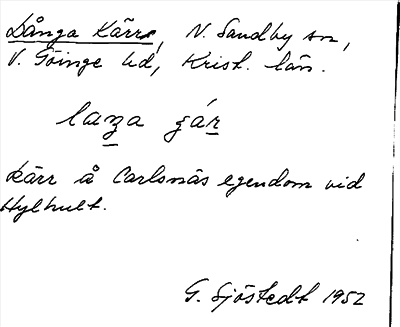 Långa Kärr, N. Sandby sn,
V. Göinge hd, Krist. län.
laŋa ɉár
Kärr å Carlsnäs egendom vid
Hylhult.
G. Sjöstedt 1952